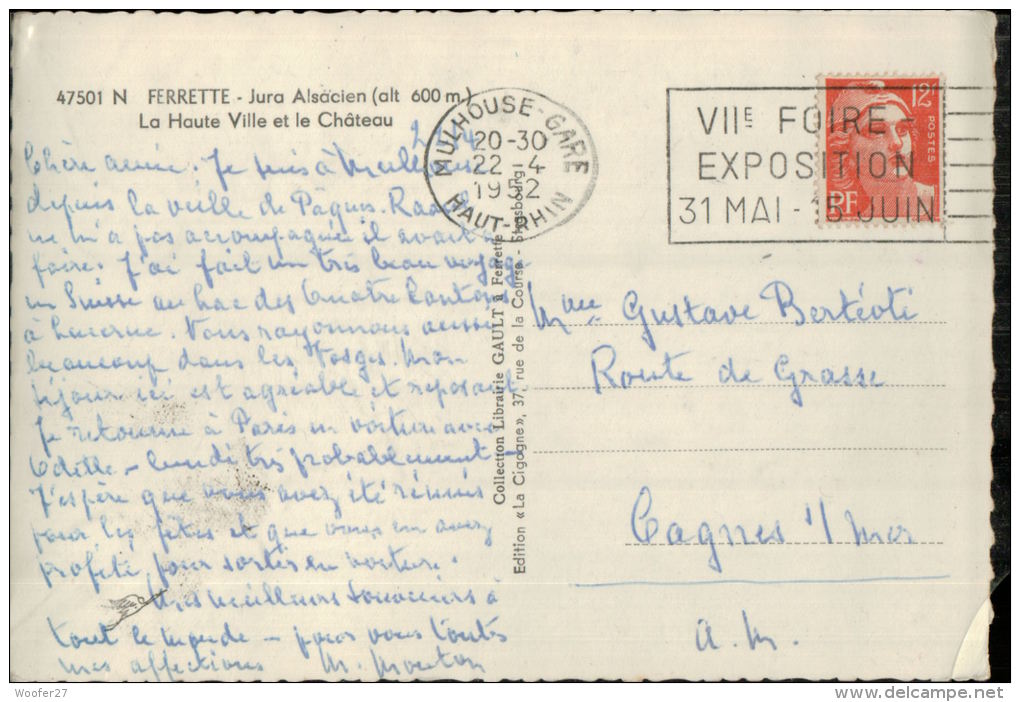 47501 N FERRETTE - Jura Alsacien (alt 600 m)
La Haute Ville et le Château
MULHOUSE-GARE
20-30
22-4
1952
HAUT-RHIN
VIIE FOIRE-
EXPOSITION
31 MAI - 15 JUIN
12F
POSTES
RF
Chère amie. Je suis à Mulhouse
depuis la veille de Pâques.
ne m'a pas accompagnée il avait à
faire. J'ai fait un très beau voyage
en Suisse au Lac des Quatre Cantons
à Lucerne. Nous rayonnons aussi
beaucoup dans les Vosges. Mon
séjour ici est agréable et reposant
Je retourne à Paris en voiture avec
Odette - lundi très probablement -
J'espère que vous avez été réunis
pour les fêtes et que vous en avez
profité pour sortir en voiture.
Mes meilleurs souvenirs à
tout le monde - pour vous toutes
mes affections M. Mouton
Collection Librairie GAULT à Ferrette
Edition «La Cigogne», 37, rue de la Course - Strasbourg
Mme Gustave Bertévoti
Route de Grasse
Cagnes s/ mer
A. M.
Woofer27
delcampe.net